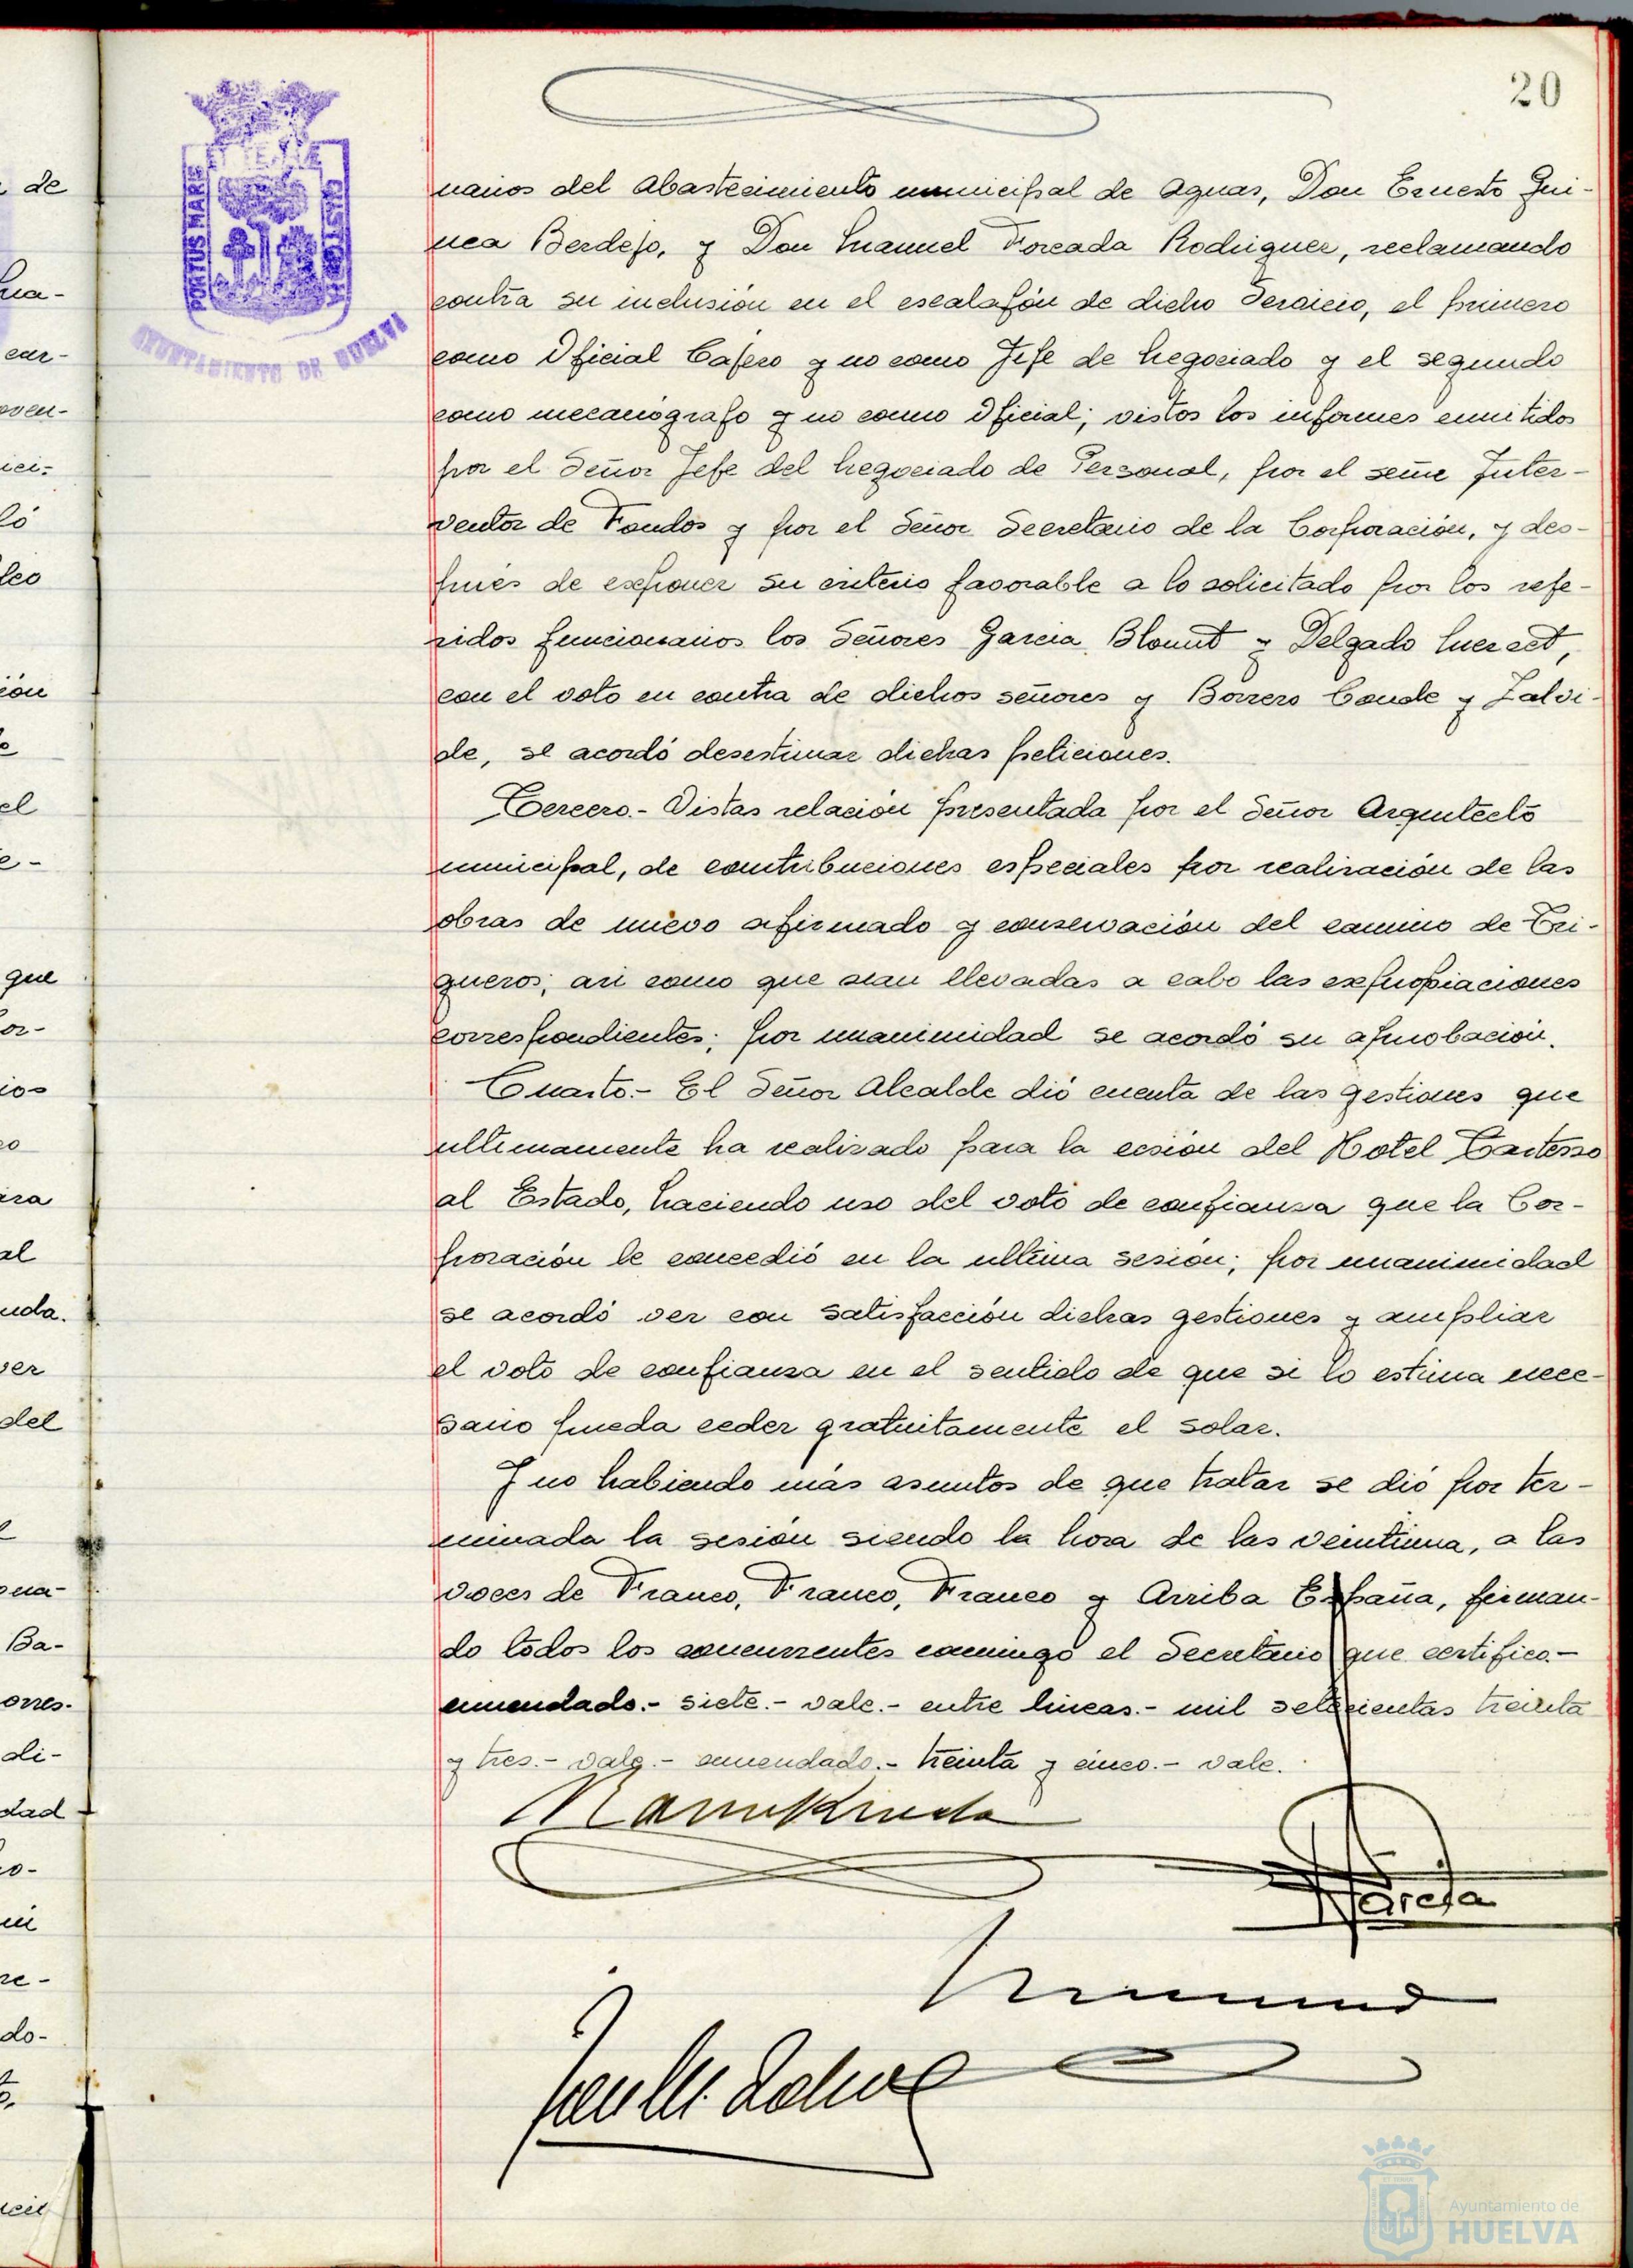 20
PORTUS MARIS
ET TERRÆ
CUSTODIA
AYUNTAMIENTO DE HUELVA
narios del Abastecimiento municipal de Aguas, Don Ernesto Gui-
nea Berdejo, y Don Manuel Forcada Rodriguez, reclamando
contra su inclusión en el escalafón de dicho Servicio, el primero
como Oficial Cajero y no como Jefe de Negociado y el segundo
como mecanógrafo y no como Oficial; vistos los informes emitidos
por el Señor Jefe del Negociado de Personal, por el señor Inter-
ventor de Fondos y por el Señor Secretario de la Corporación, y des-
pués de exponer su criterio favorable a lo solicitado por los refe-
ridos funcionarios los Señores Garcia, y Delgado
con el voto en contra de dichos señores y Borrero Conde y Zalvi-
de, se acordó desestimar dichas peticiones.
Tercero.- Vistas relación presentada por el Señor Arquitecto
municipal, de contribuciones especiales por realización de las
obras de nuevo afirmado y conservación del camino de Tri-
gueros; asi como que sean llevadas a cabo las expropiaciones
correspondientes; por unanimidad se acordó su aprobación.
Cuarto.- El Señor Alcalde dió cuenta de las gestiones que
ultimamente ha realizado para la cesión del Hotel Tartesso
al Estado, haciendo uso del voto de confianza que la Cor-
poración le concedió en la ultima sesión; por unanimidad
se acordó ver con satisfacción dichas gestiones y ampliar
el voto de confianza en el sentido de que si lo estima nece-
sario pueda ceder gratuitamente el solar.
Y no habiendo más asuntos de que tratar se dió por ter-
minada la sesión siendo la hora de las veintiuna, a las
voces de Franco, Franco, Franco y Arriba España, firman-
do todos los concurrentes conmigo el Secretario que certifico.-
enmendado.- siete.- vale.- entre lineas.- mil setecientas treinta
y tres.- vale.- enmendado.- treinta y cinco.- vale.
Garcia
Ayuntamiento de
HUELVA